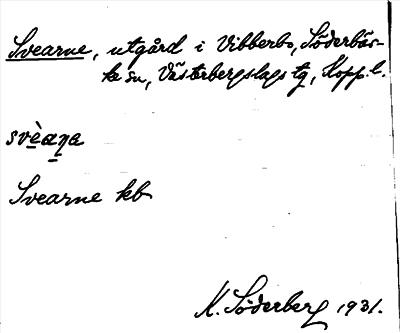 Svearne, utgård i Vibberbo, Söderbäs-
ke sn, Västerbergslags tg, Kopp. l.
svèaṇa
Svearne kb
K. Söderberg 1931.